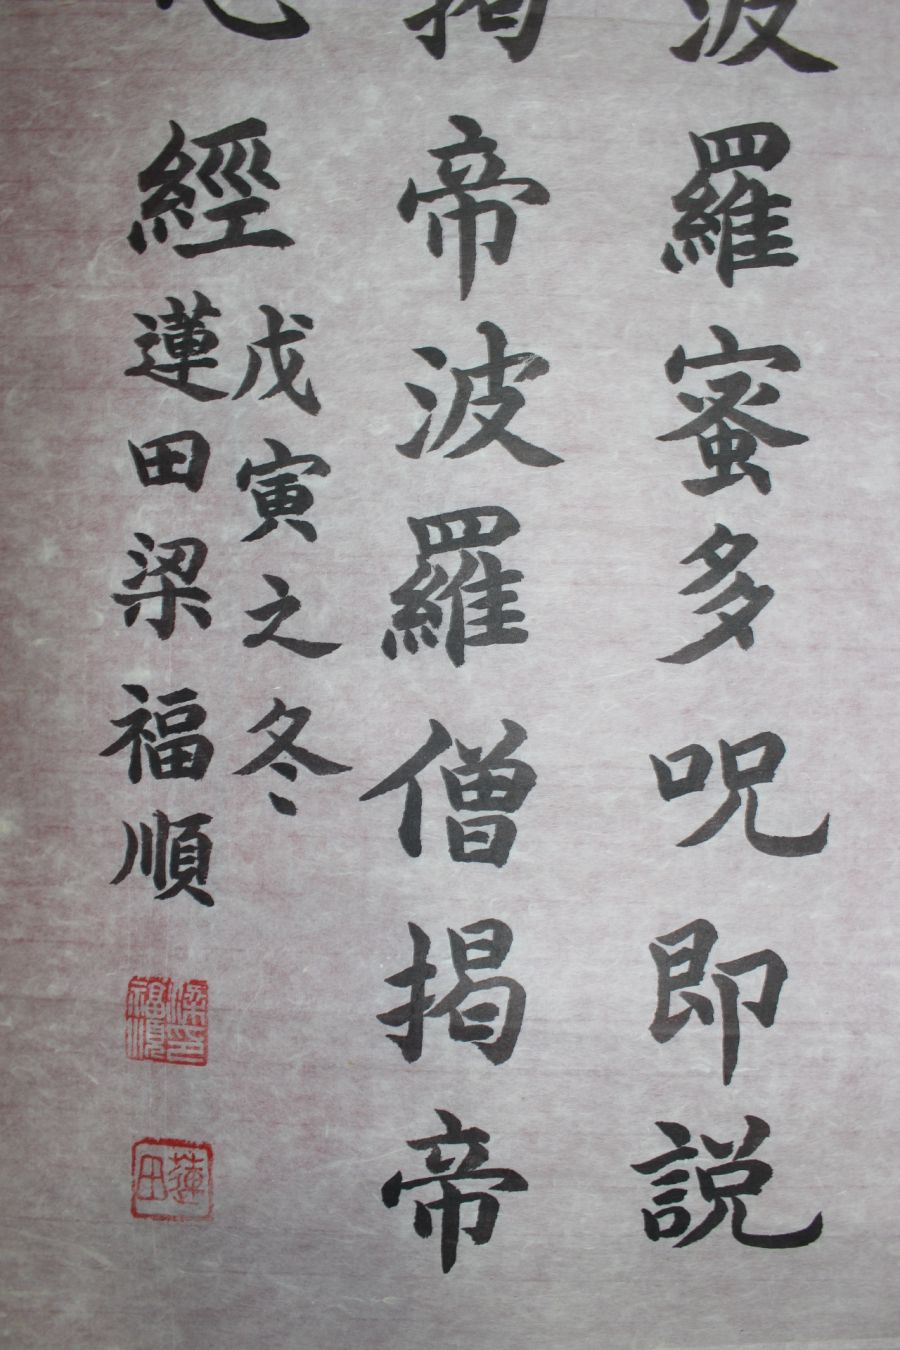 波羅蜜多呪即説
揭帝波羅僧揭帝
心經
戊寅之冬
蓮田梁福順
梁印福順
蓮田